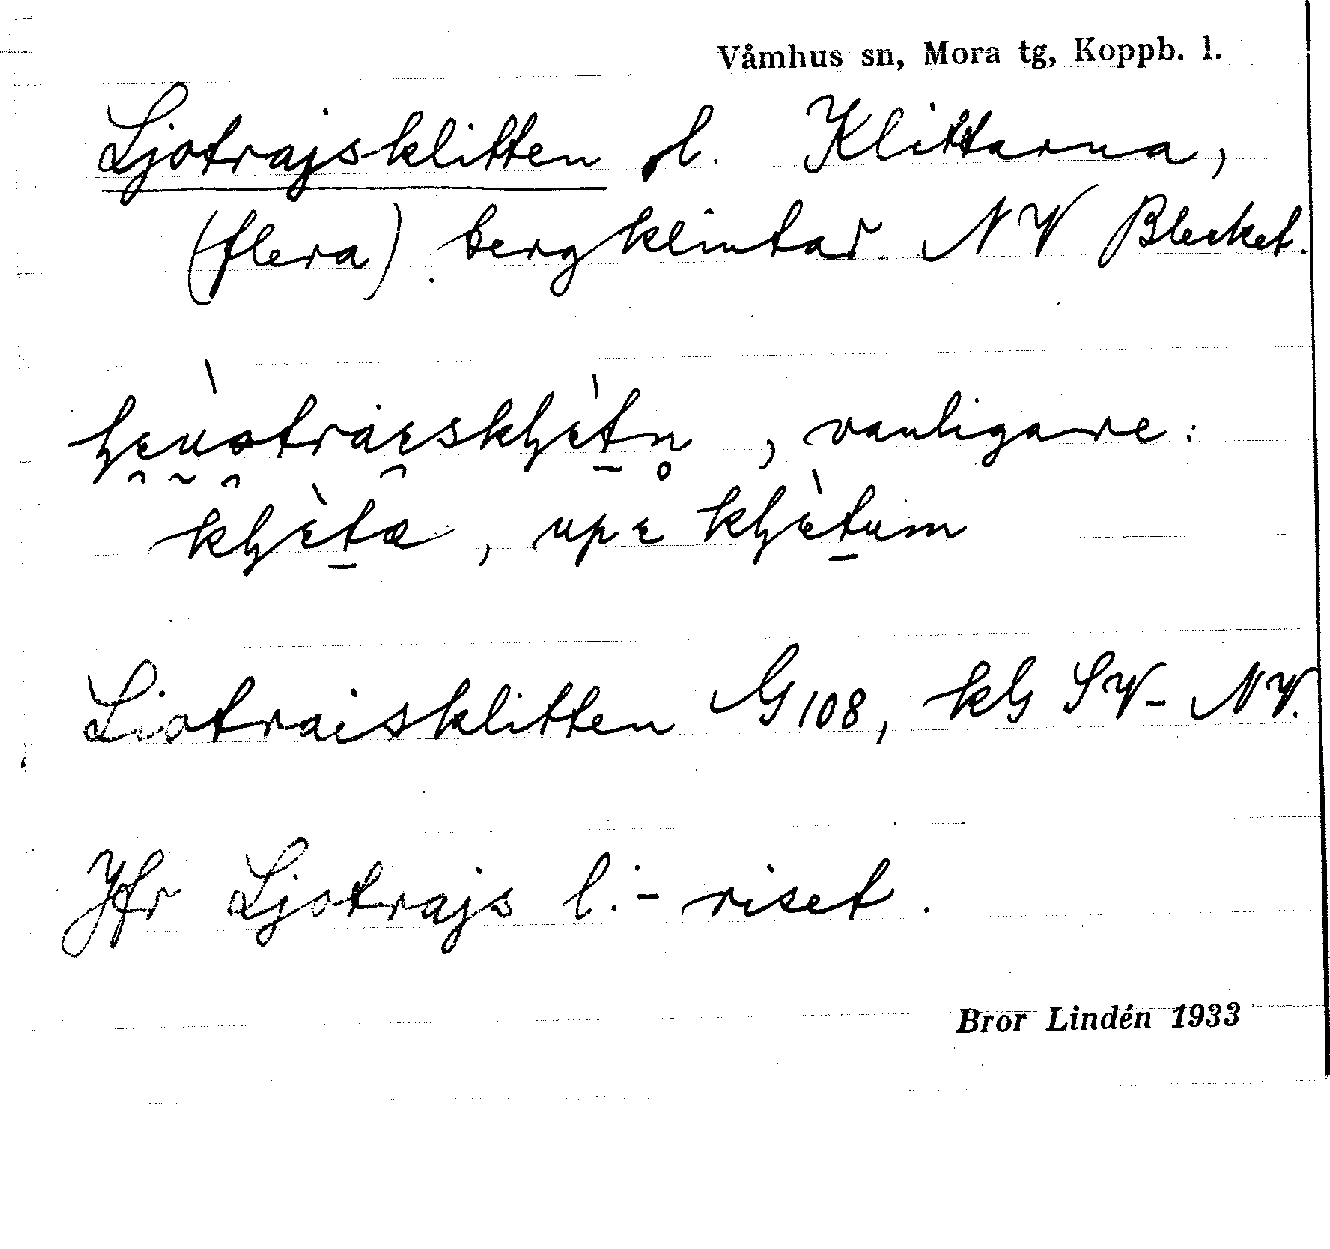 Våmhus sn, Mora tg, Koppb. l.
Ljotrajsklitten l. Klittarna,
(flera) bergklintar NV Blecket.
, vanligare:
Liotraisklitten G 108, kG SV-NV.
Jfr Ljotrajs l. -riset.
Bror Lindén 1933